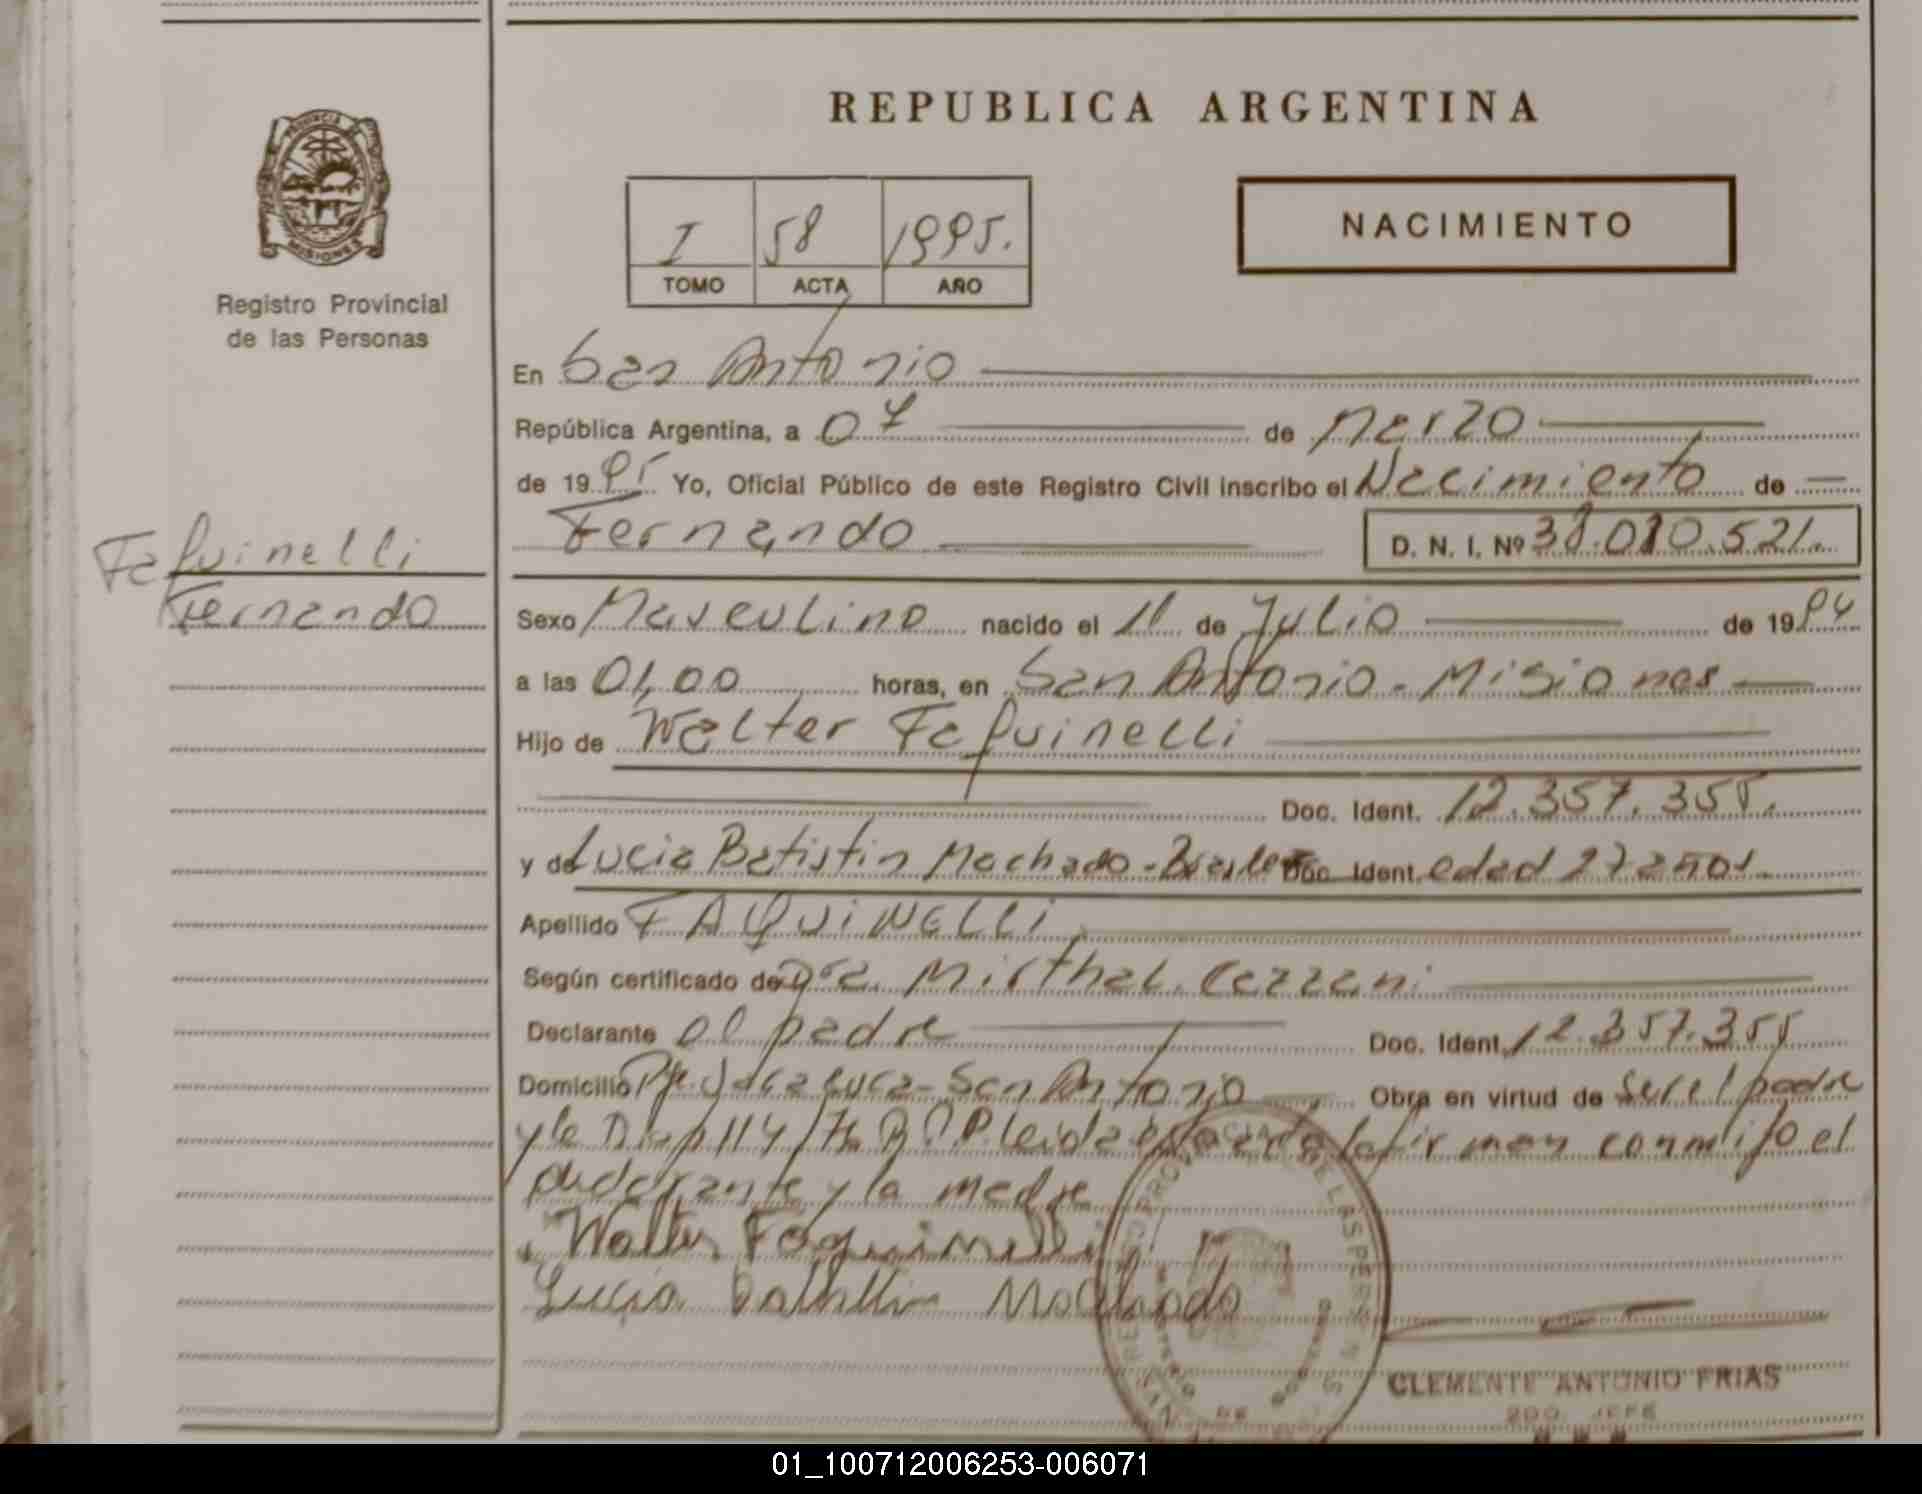 REPUBLICA ARGENTINA
PROVINCIA DE
MISIONES
Registro Provincial
de las Personas
I 58 1995.
TOMO ACTA AÑO
NACIMIENTO
En San Antonio
República Argentina, a 07 de Marzo
de 1995 Yo, Oficial Público de este Registro Civil inscribo el Nacimiento de
Fernando D. N. I. Nº 38.010.521.
Faquinelli
Fernando
Sexo Masculino nacido el 11 de Julio de 1994
a las 01,00 horas, en San Antonio - Misiones
Hijo de Walter Faquinelli
Doc. Ident. 12.357.355.
y de Lucia Batistin Machado - Doc. Ident. edad 27 años.
Apellido FAQUINELLI
Según certificado de Dra. Mirtha L. Cazzani
Declarante el padre Doc. Ident. 12.357.355
Domicilio San Antonio Obra en virtud de ser el padre
y la 114 leida el acta la firman conmigo el
declarante y la madre
Walter Faquinelli
Lucia Batistin Machado
CLEMENTE ANTONIO FRIAS
2DO. JEFE
01_100712006253-006071